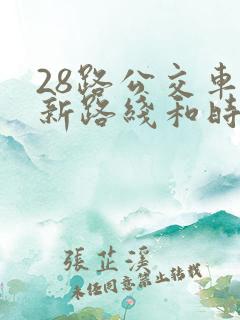 28路公交车
新路线和时
張芷溪
未经同意禁止转载